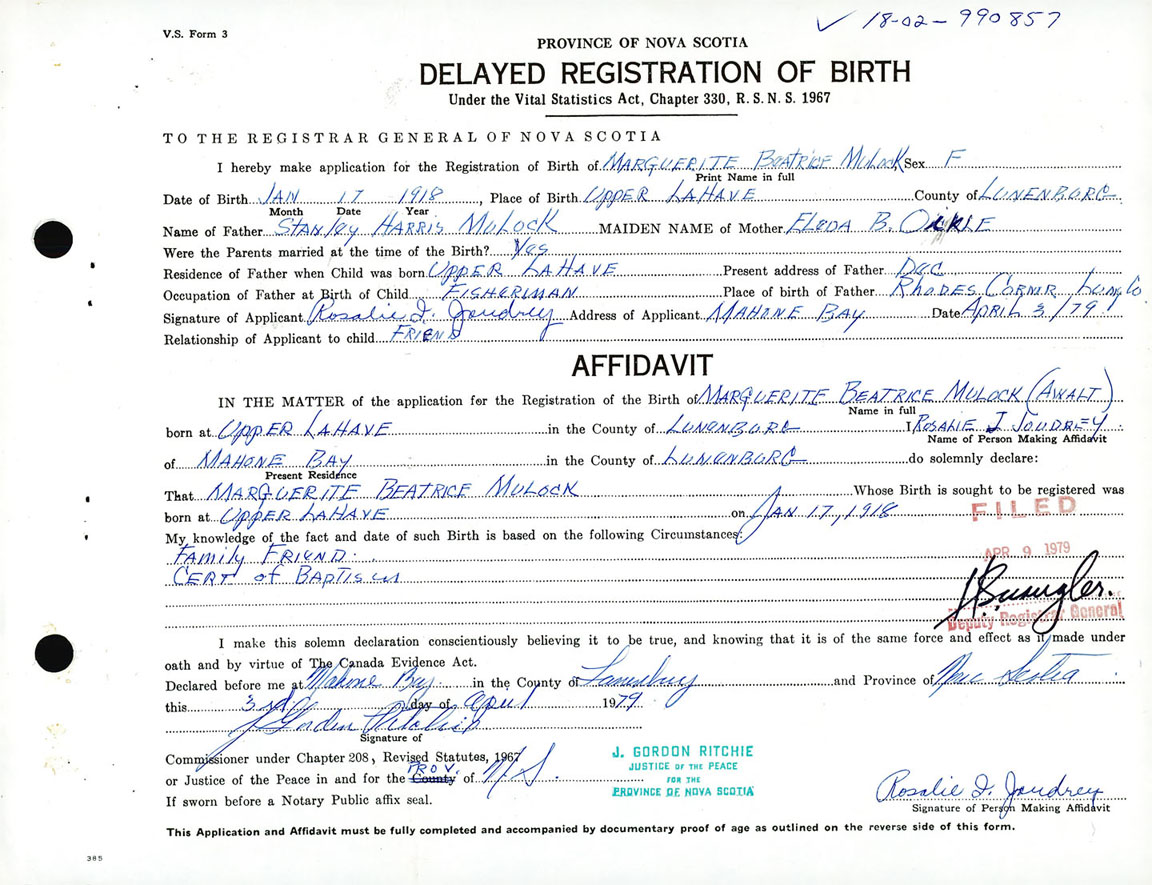 ✓ 18-02-990857
V.S. Form 3
PROVINCE OF NOVA SCOTIA
DELAYED REGISTRATION OF BIRTH
Under the Vital Statistics Act, Chapter 330, R.S.N.S. 1967
TO THE REGISTRAR GENERAL OF NOVA SCOTIA
I hereby make application for the Registration of Birth of MARGUERITE BEATRICE MULOCK Sex F
Print Name in full
Date of Birth JAN 17 1918, Place of Birth UPPER LAHAVE County of LUNENBURG.
Month Date Year
Name of Father STANLEY HARRIS MULOCK MAIDEN NAME of Mother ELEDA B. OICKLE
Were the Parents married at the time of the Birth? Yes
Residence of Father when Child was born UPPER LAHAVE Present address of Father DEC
Occupation of Father at Birth of Child FISHERMAN Place of birth of Father RHODES CORNR LUN Co.
Signature of Applicant Rosalie I. Joudrey Address of Applicant MAHONE BAY Date APRIL 3/79
Relationship of Applicant to child FRIEND
AFFIDAVIT
IN THE MATTER of the application for the Registration of the Birth of MARGUERITE BEATRICE MULOCK (AWALT)
Name in full
born at UPPER LAHAVE in the County of LUNENBURG I ROSALIE I JOUDREY
Name of Person Making Affidavit
of MAHONE BAY in the County of LUNENBURG do solemnly declare:
Present Residence
That MARGUERITE BEATRICE MULOCK Whose Birth is sought to be registered was
born at UPPER LAHAVE on JAN 17, 1918
FILED
My knowledge of the fact and date of such Birth is based on the following Circumstances:
FAMILY FRIEND.
APR 9 1979
CERT of BAPTISM
Deputy Registrar General
I make this solemn declaration conscientiously believing it to be true, and knowing that it is of the same force and effect as if made under
oath and by virtue of The Canada Evidence Act.
Declared before me at Mahone Bay in the County of Lunenburg and Province of Nova Scotia
this 3rd day of April 1979
J Gordon Ritchie
Signature of
Commissioner under Chapter 208, Revised Statutes, 1967
PROV.
or Justice of the Peace in and for the County of N.S.
If sworn before a Notary Public affix seal.
J. GORDON RITCHIE
JUSTICE OF THE PEACE
FOR THE
PROVINCE OF NOVA SCOTIA
Rosalie I. Joudrey
Signature of Person Making Affidavit
This Application and Affidavit must be fully completed and accompanied by documentary proof of age as outlined on the reverse side of this form.
385